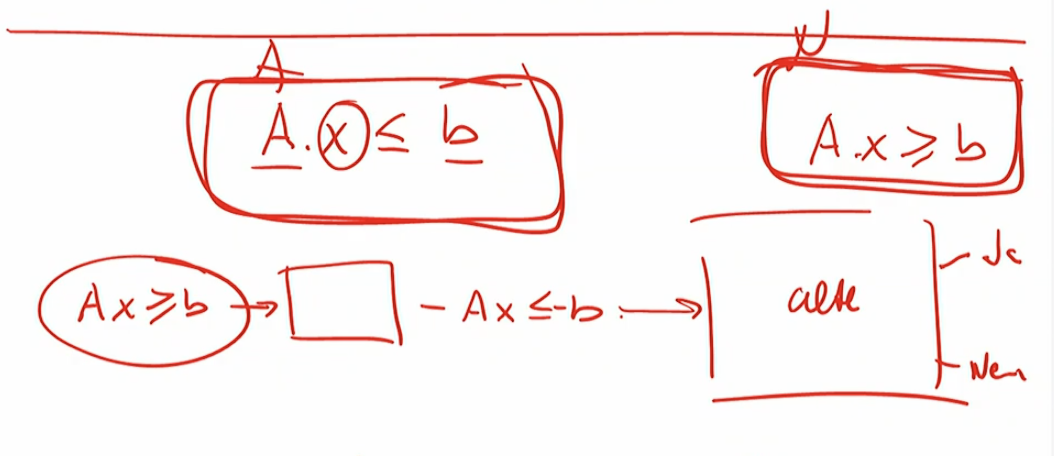 A N
A.x ≤ b A.x ≥ b
Ax ≥ b → - Ax ≤ -b → alte Ja
Nein